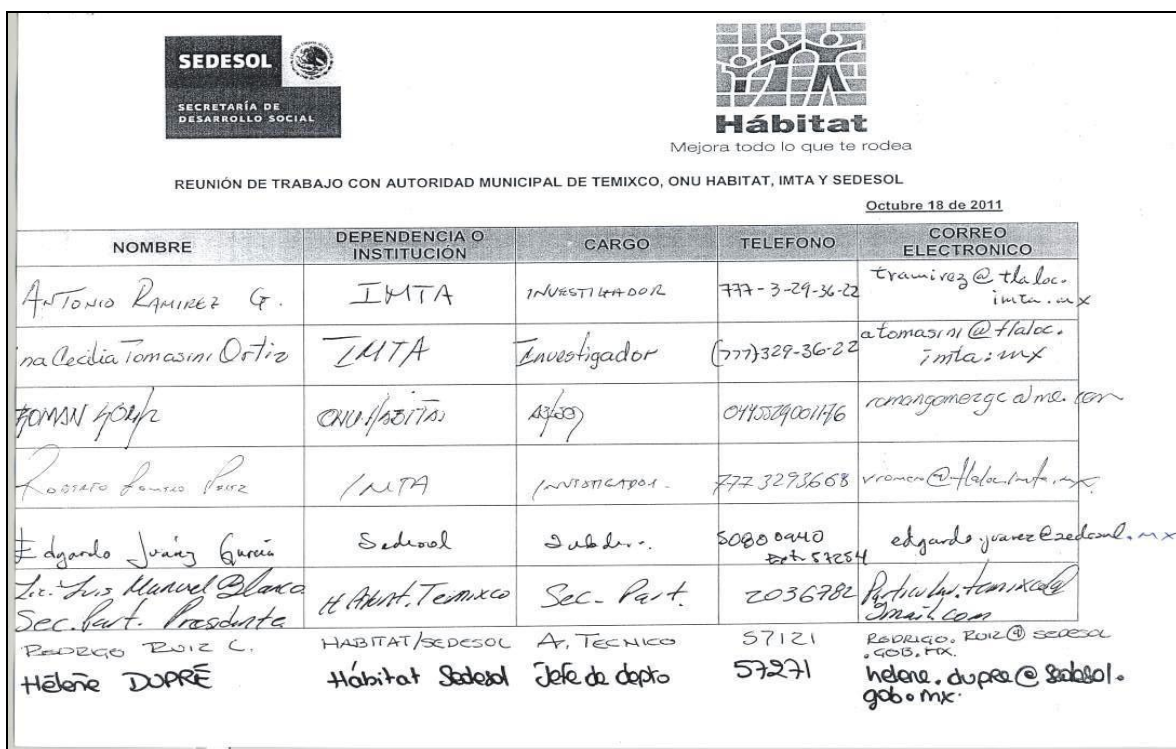 SEDESOL
SECRETARÍA DE
DESARROLLO SOCIAL
Hábitat
Mejora todo lo que te rodea
REUNIÓN DE TRABAJO CON AUTORIDAD MUNICIPAL DE TEMIXCO, ONU HABITAT, IMTA Y SEDESOL
Octubre 18 de 2011
NOMBRE DEPENDENCIA O INSTITUCIÓN CARGO TELEFONO CORREO ELECTRONICO
ANTONIO RAMIREZ G. IMTA INVESTIGADOR 777-3-29-36-22 tramirez@tlaloc.
imta.mx
na Cecilia Tomasini Ortiz IMTA Investigador (777)329-36-22 atomasini@tlaloc.
imta.mx
ROMAN GOMEZ ONU-HABITAT 0445529001176 romangomezgc@me.com
ROBERTO ROMERO PEREZ IMTA INVESTIGADOR. 777 3293668 vromero@tlaloc.imta.mx
Edgardo Juárez García Sedesol Subdir. 50800940 edgardo.juarez@sedesol.mx
Ext. 57254
Lic. Luis Manuel Blanco H Ahnt. Temixco Sec. Part. 2036782 Particular.temixco@
Sec. Part. Presidenta gmail.com
RODRIGO RUIZ C. HABITAT/SEDESOL A. TECNICO 57121 RODRIGO.RUIZ@SEDESOL
.GOB.MX.
Hélène DUPRÉ Hábitat Sedesol Jefe de depto 57271 helene.dupre@sedesol.
gob.mx.